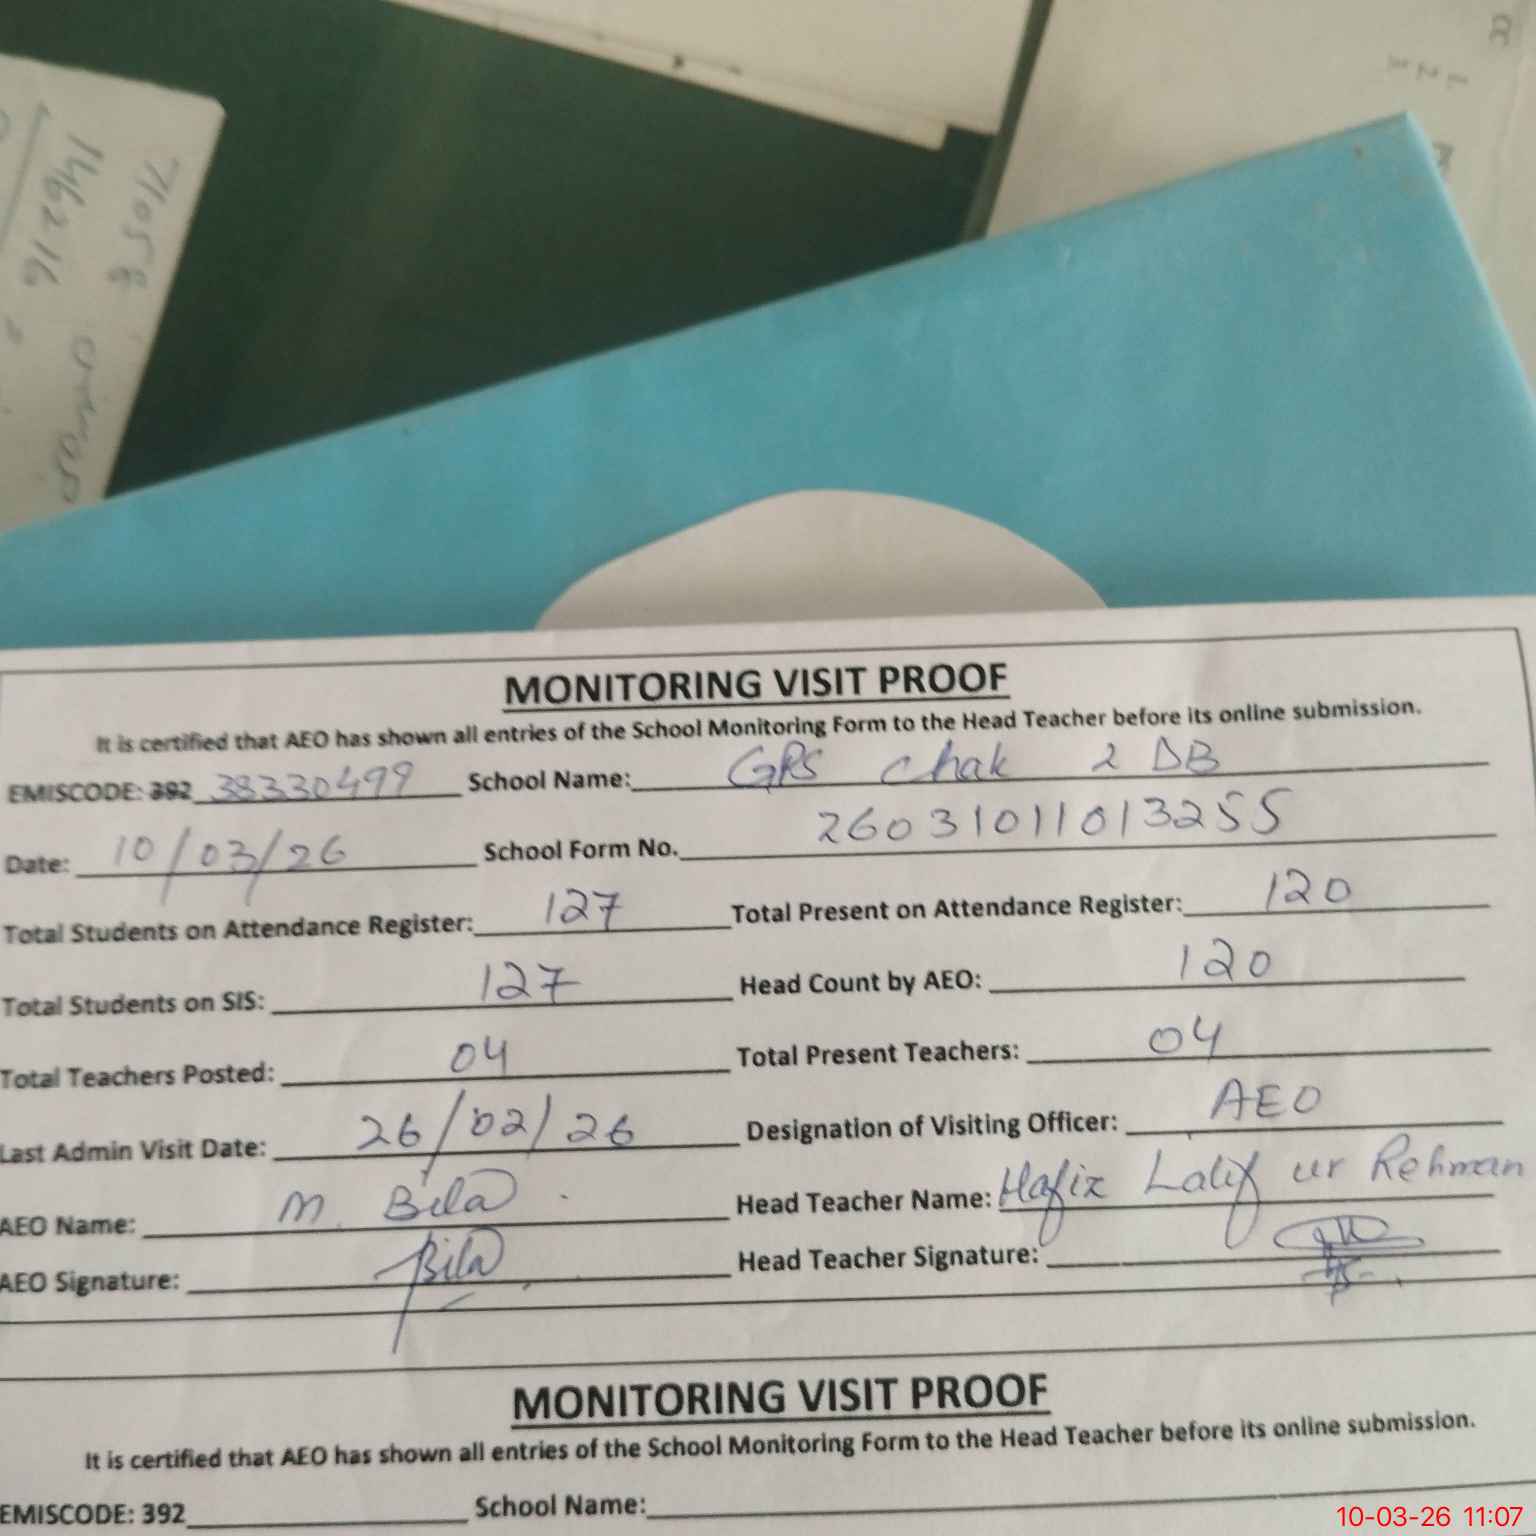 71058
146216
MONITORING VISIT PROOF
It is certified that AEO has shown all entries of the School Monitoring Form to the Head Teacher before its online submission.
EMISCODE: 392 38330499 School Name: GPS Chak 2 DB
Date: 10/03/26 School Form No. 26031011013255
Total Students on Attendance Register: 127 Total Present on Attendance Register: 120
Total Students on SIS: 127 Head Count by AEO: 120
Total Teachers Posted: 04 Total Present Teachers: 04
Last Admin Visit Date: 26/02/26 Designation of Visiting Officer: AEO
AEO Name: M. Bilal Head Teacher Name: Hafiz Latif ur Rehman
AEO Signature: Bilal Head Teacher Signature:
MONITORING VISIT PROOF
It is certified that AEO has shown all entries of the School Monitoring Form to the Head Teacher before its online submission.
EMISCODE: 392 School Name:
10-03-26 11:07